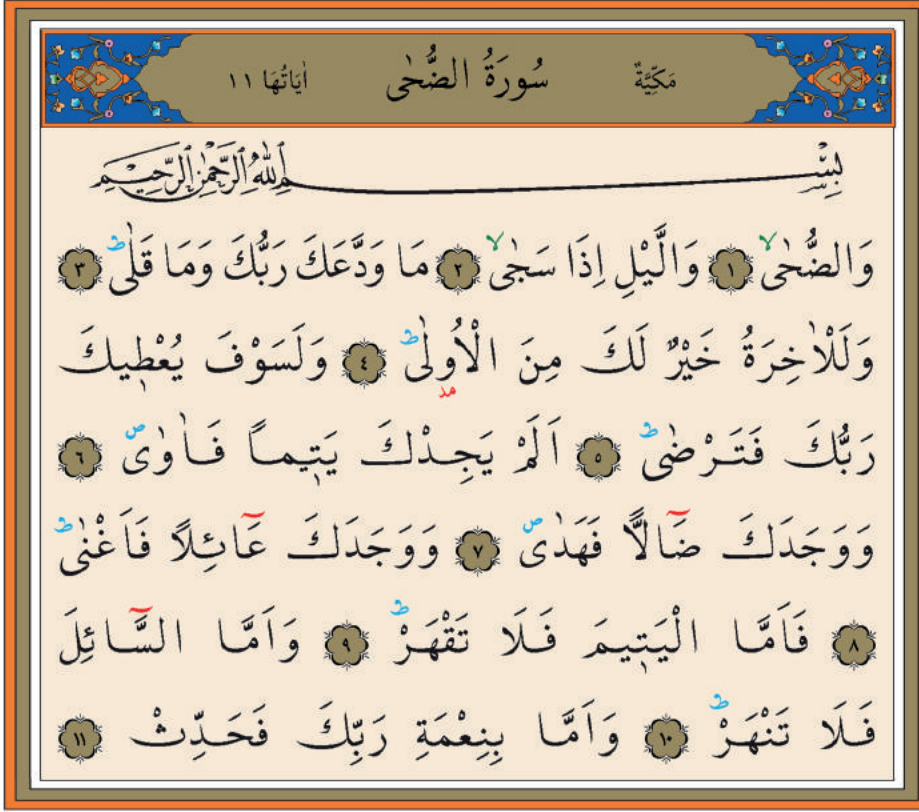 سُورَةُ الضُّحٰى مَكِّيَّةٌ اٰيَاتُهَا ١١
بِسْمِ اللّٰهِ الرَّحْمٰنِ الرَّحِيمِ
وَالضُّحٰىۙ ﴿١﴾ وَالَّيْلِ اِذَا سَجٰىۙ ﴿٢﴾ مَا وَدَّعَكَ رَبُّكَ وَمَا قَلٰىؕ ﴿٣﴾
وَلَلْاٰخِرَةُ خَيْرٌ لَكَ مِنَ الْاُو۫لٰىؕ ﴿٤﴾ وَلَسَوْفَ يُعْط۪يكَ
رَبُّكَ فَتَرْضٰىؕ ﴿٥﴾ اَلَمْ يَجِدْكَ يَت۪يماً فَاٰوٰىۖ ﴿٦﴾
وَوَجَدَكَ ضَٓالًّا فَهَدٰىۖ ﴿٧﴾ وَوَجَدَكَ عَٓائِلاً فَاَغْنٰىؕ
﴿٨﴾ فَاَمَّا الْيَت۪يمَ فَلَا تَقْهَرْؕ ﴿٩﴾ وَاَمَّا السَّٓائِلَ
فَلَا تَنْهَرْؕ ﴿١٠﴾ وَاَمَّا بِنِعْمَةِ رَبِّكَ فَحَدِّثْ ﴿١١﴾